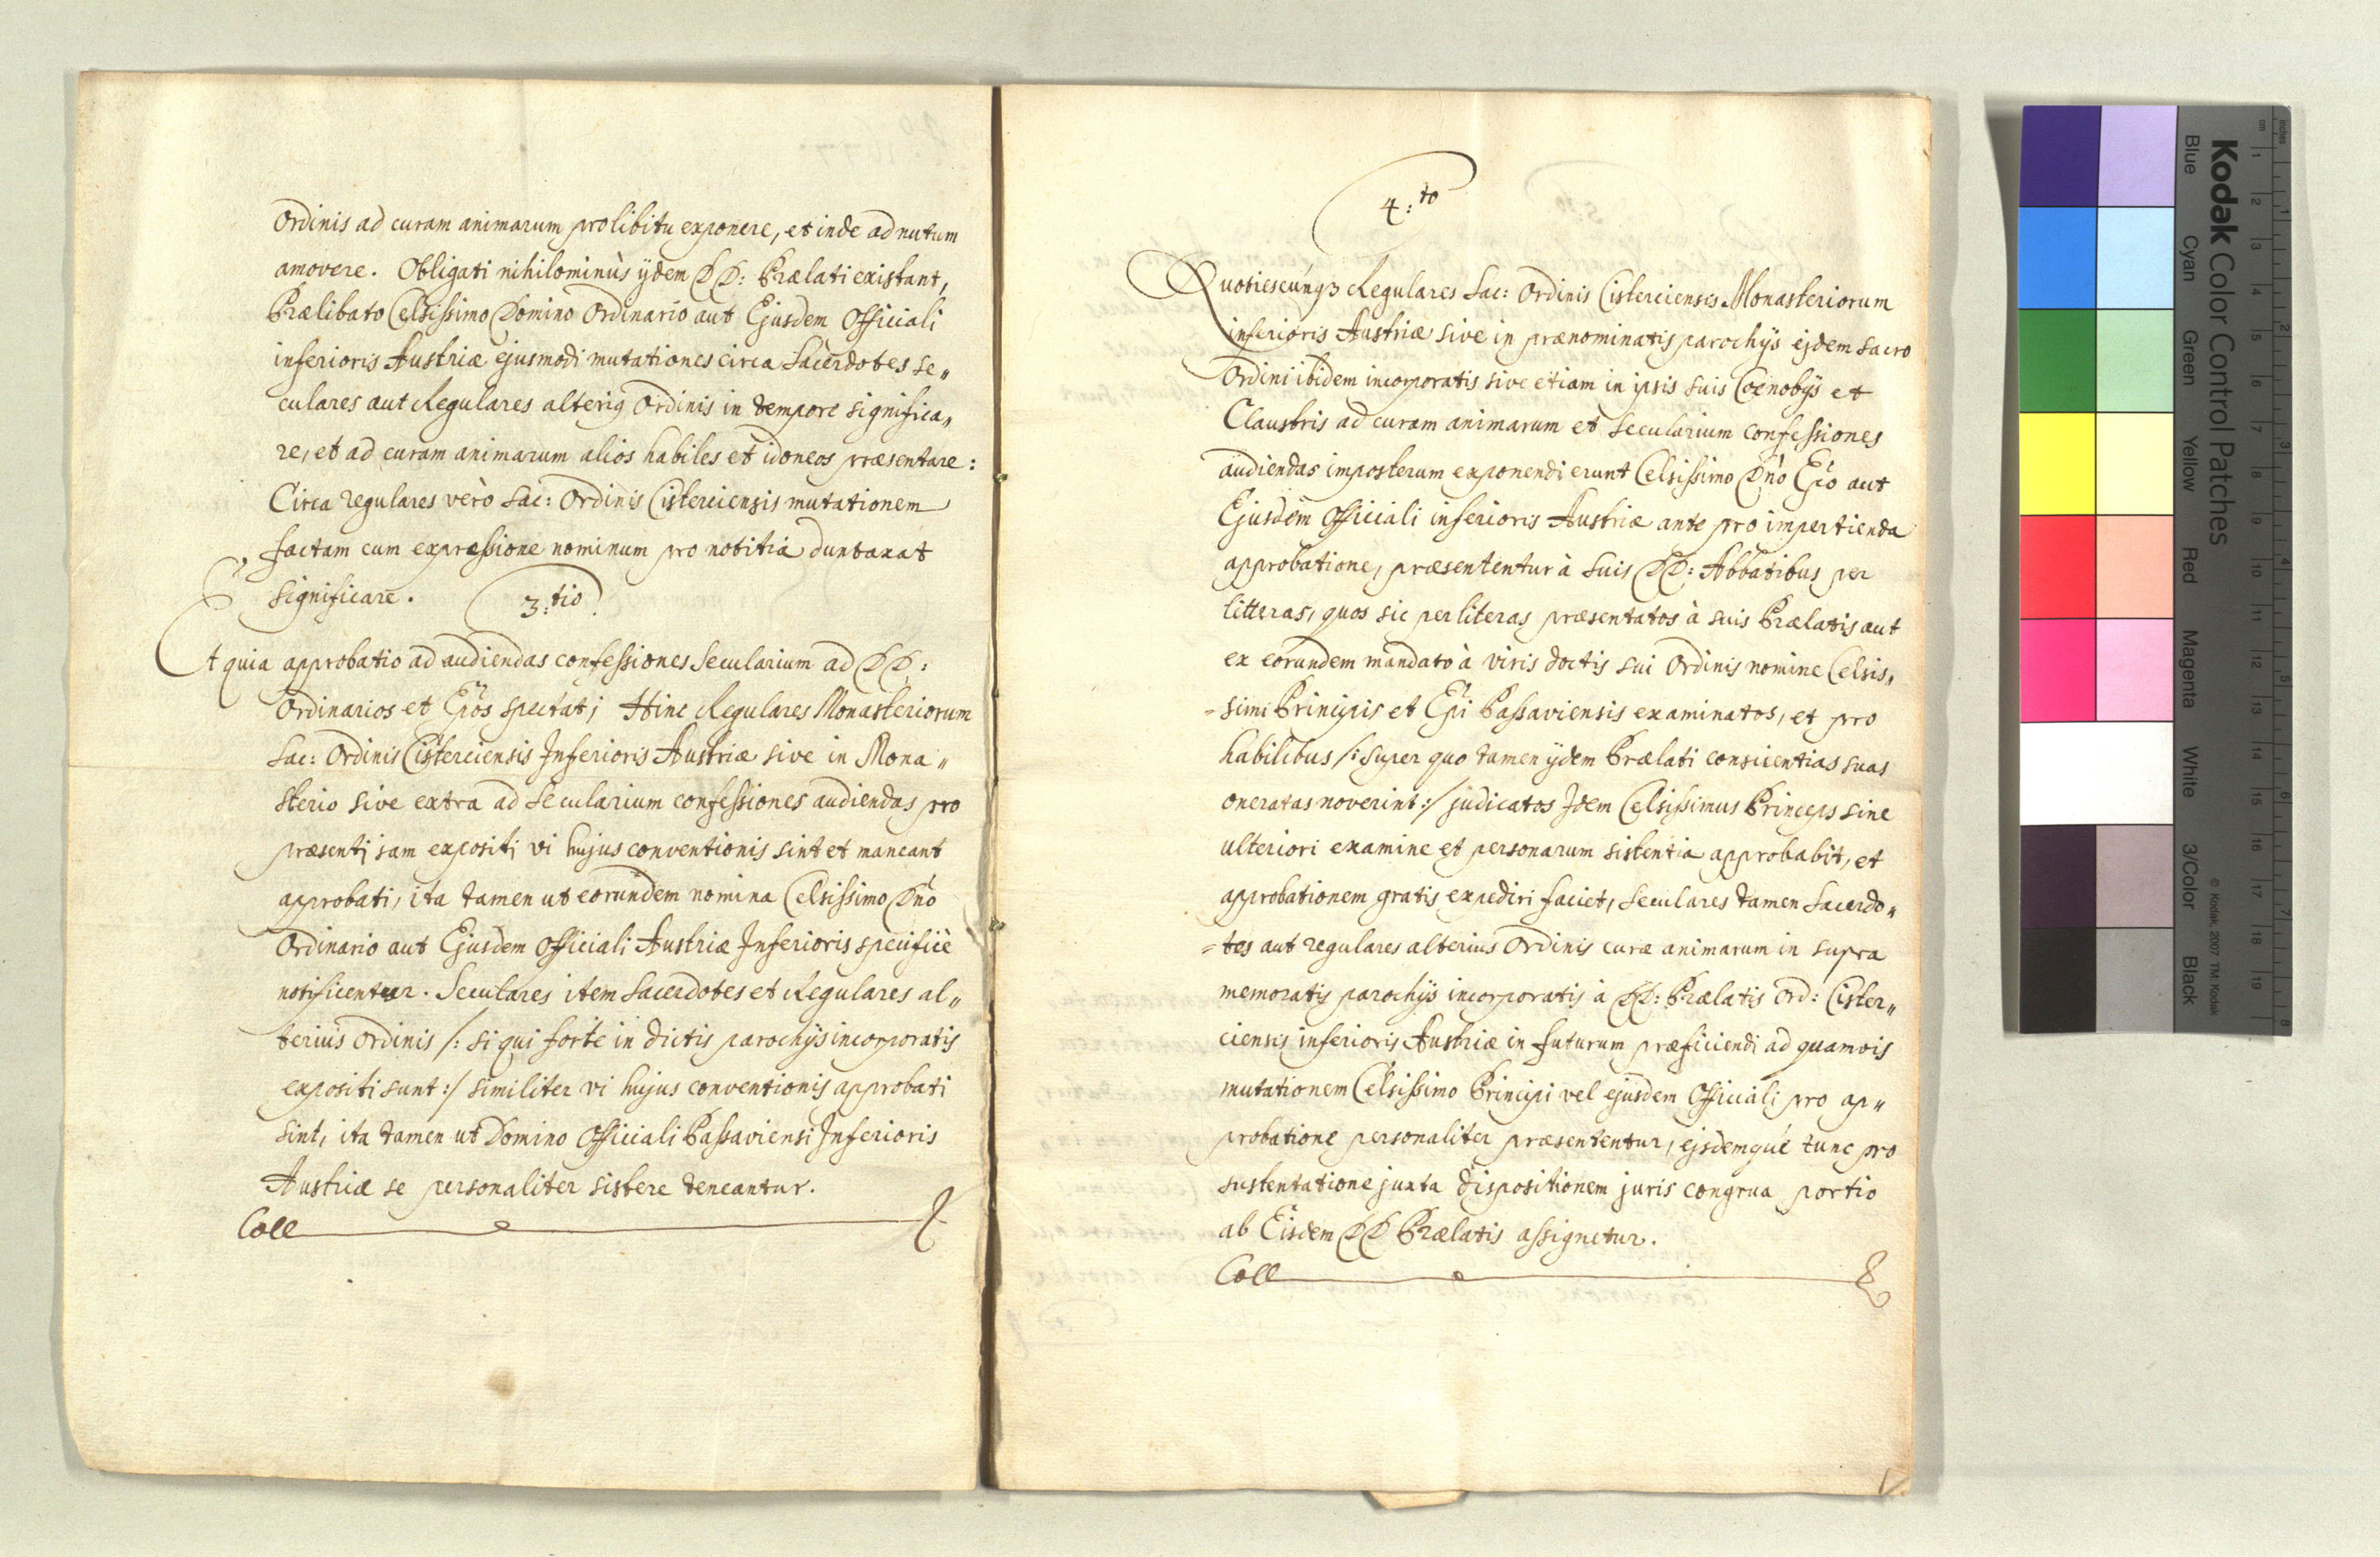 Ordinis ad curam animarum pro libitu exponere, et inde ad nutum
amovere. Obligati nihilominùs ijdem DD: Prælati existant,
Prælibato Celsissimo Domino Ordinario aut Ejusdem Officiali
inferioris Austriæ ejusmodi mutationes circa Sacerdotes se„
culares aut Regulares alterig Ordinis in tempore significa„
re, et ad curam animarum alios habiles et idoneos præsentare:
Circa regulares verò Sac: Ordinis Cisterciensis mutationem
factam cum expressione nominum pro notitia duntaxat
significare.
3:tio
Et quia approbatio ad audiendas confessiones Secularium ad DD:
Ordinarios et Epõs spectat; Hinc Regulares Monasteriorum
Sac: Ordinis Cisterciensis Inferioris Austriæ sive in Mona„
sterio sive extra ad Secularium confessiones audiendas pro
præsentj jam expositj vi hujus conventionis sint et maneant
approbati, ita tamen ut eorundem nomina Celsissimo Dño
Ordinario aut Ejusdem Officiali Austriæ Inferioris specificè
notificentur. Seculares item Sacerdotes et Regulares al„
terius Ordinis /: si qui forte in dictis parochijs incorporatis
expositi sunt :/ similiter vi hujus conventionis approbati
sint, ita tamen ut Domino Officiali Passaviensi Inferioris
Austriæ se personaliter sistere teneantur.
Coll
4:to
Quotiescunq3 Regulares Sac: Ordinis Cistercienses Monasteriorum
inferioris Austriæ sive in prænominatis parochijs ejdem Sacro
Ordini ibidem incorporatis sive etiam in ipsis suis Cœnobijs et
Claustris ad curam animarum et Secularium confessiones
audiendas imposterum exponendi erunt Celsissimo Dño Epõ aut
Ejusdem Officiali inferioris Austriæ ante pro impertienda
approbatione, præsententur à suis DD: Abbatibus per
litteras, quos sic per literas præsentatos à suis Prælatis aut
ex eorundem mandato à viris doctis sui Ordinis nomine Celsis„
=simi Principis et Epi Passaviensis examinatos, et pro
habilibus /: super quo tamen ijdem Prælati consientias suas
oneratas noverint :/ judicatos Idem Celsissimus Princeps sine
ulteriori examine et personarum sistentia approbabit, et
approbationem gratis expediri faciet, Seculares tamen Sacerdo„
=tes aut regulares alterius Ordinis curæ animarum in supra
memoratis parochijs incorporatis à DD: Prælatis Ord: Cister„
ciensis inferioris Austriæ in futurum præficiendi ad quamvis
mutationem Celsissimo Principi vel ejusdem Officiali pro ap„
probatione personaliter præsententur, ejsdemque tunc pro
sustentatione juxta dispositionem juris congrua portio
ab Eisdem DD Prælatis assignetur.
Coll
Kodak Color Control Patches
Blue Cyan Green Yellow Red Magenta White 3/Color Black
© Kodak, 2007 TM: Kodak
inches 1 2 3 4 5 6 7 8
cm 1 2 5 6 7 8 9 10 11 12 13 14 15 16 17 18 19